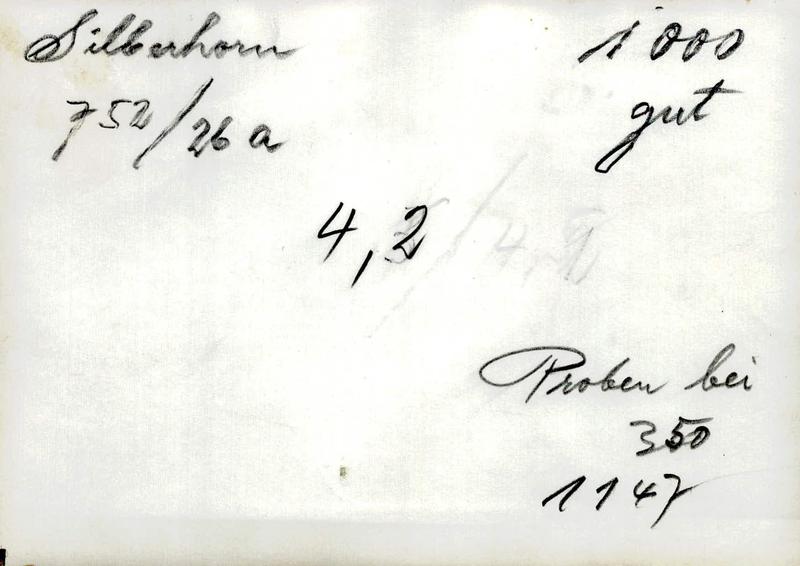 Silberhorn
1000
752/26 a
gut
4,2
Proben bei
350
1147